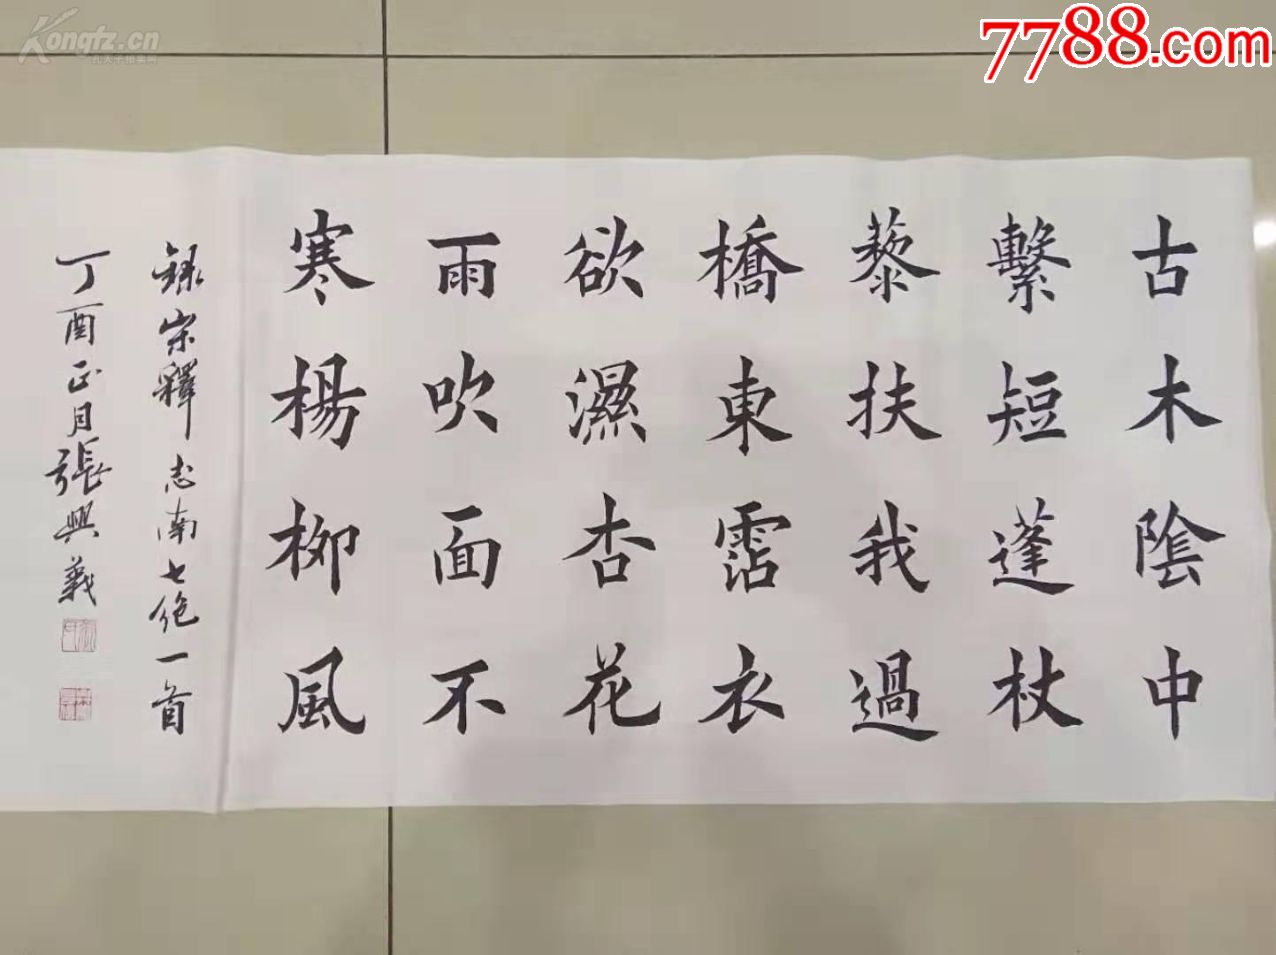 古木陰中
繫短蓬杖
藜扶我過
橋東霑衣
欲濕杏花
雨吹面不
寒楊柳風
錄宋釋志南七絕一首
丁酉正月張興義
Kongfz.cn
7788.com